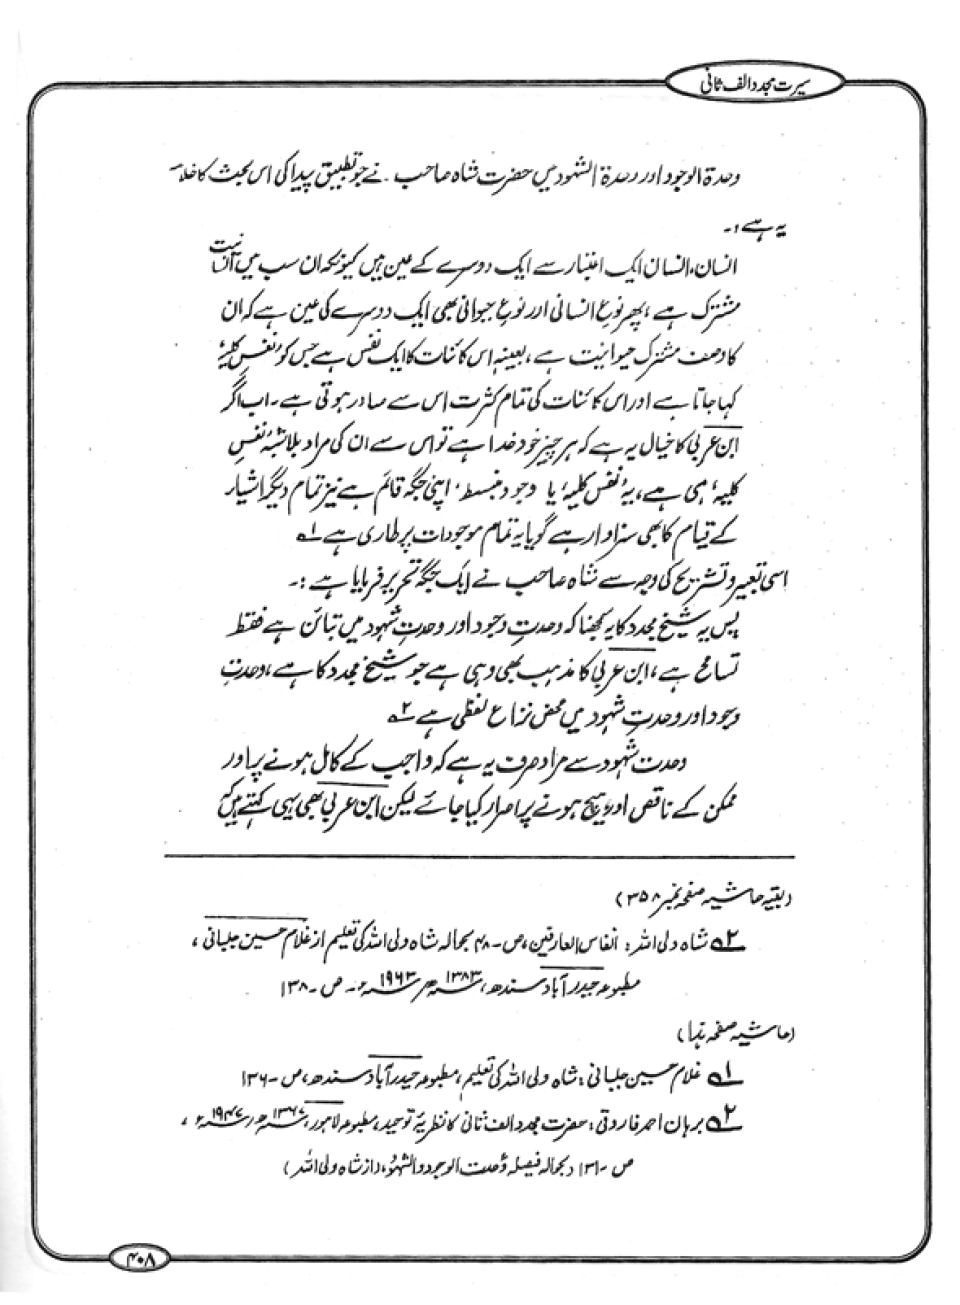 سیرت مجدد الف ثانی
وحدۃ الوجود اور وحدۃ الشہود میں حضرت شاہ صاحب نے جو تطبیق پیدا کی اس بحث کا خلاصہ
یہ ہے :۔
انسان، انسان ایک اعتبار سے ایک دوسرے کے عین ہیں کیونکہ ان سب میں انسانیت
مشترک ہے، پھر نوعِ انسانی اور نوعِ حیوانی بھی ایک دوسرے کی عین ہے کہ ان
کا وصف مشترک حیوانیت ہے، بعینہٖ اس کائنات کا ایک نفس ہے جس کو نفسِ کلیہ
کہا جاتا ہے اور اس کائنات کی تمام کثرت اس سے صادر ہوتی ہے۔ اب اگر
ابن عربی کا خیال یہ ہے کہ ہر چیز خود خدا ہے تو اس سے ان کی مراد بلاشبہ نفسِ
کلیہ ہی ہے، یہ نفس کلیہ یا وجود منبسط، اپنی جگہ قائم ہے نیز تمام دیگر اشیار
کے قیام کا بھی سزاوار ہے گویا یہ تمام موجودات پر طاری ہے ۱؎
اسی تعبیر و تشریح کی وجہ سے شاہ صاحب نے ایک جگہ تحریر فرمایا ہے :۔
پس یہ شیخ مجدد کا یہ کہنا کہ وحدتِ وجود اور وحدتِ شہود میں تبائن ہے فقط
تسامح ہے، ابن عربی کا مذہب بھی وہی ہے جو شیخ مجدد کا ہے، وحدتِ
وجود اور وحدتِ شہود میں محض نزاع لفظی ہے ۲؎
وحدت شہود سے مراد صرف یہ ہے کہ واجب کے کامل ہونے پر اور
ممکن کے ناقص اور ہیچ ہونے پر اصرار کیا جائے لیکن ابن عربی بھی یہی کہتے ہیں کہ
(بقیہ حاشیہ صفحہ نمبر ۳۵۸)
۲؎ شاہ ولی اللہ : انفاس العارفین، ص۔ ۴۸ بحوالہ شاہ ولی اللہ کی تعلیم از غلام حسین جلبانی،
مطبوعہ حیدرآباد سندھ، ۱۳۸۳ھ ۱۹۶۳ء۔ ص۔ ۱۳۸
(حاشیہ صفحہ ہذا)
۱؎ غلام حسین جلبانی : شاہ ولی اللہ کی تعلیم، مطبوعہ حیدرآباد سندھ، ص۔ ۱۳۶
۲؎ برہان احمد فاروقی : حضرت مجدد الف ثانی کا نظریۂ توحید، مطبوعہ لاہور، ۱۳۶۷ھ / ۱۹۴۷ء،
ص ۔ ۱۳۱ (بحوالہ فیصلہ وحدت الوجود والشہود، از شاہ ولی اللہ)
۴۰۸